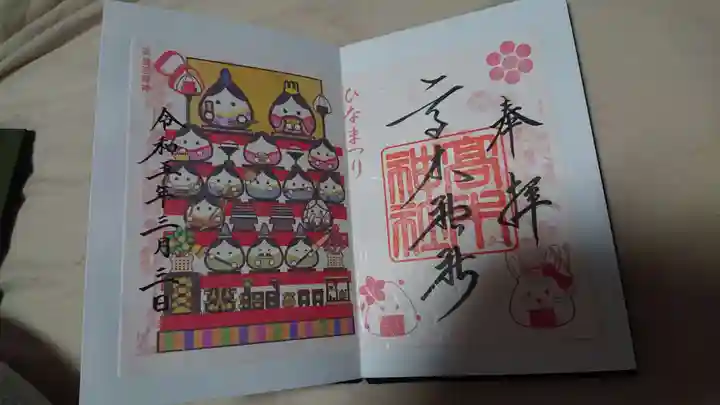 奉拝
高木神社
高木
神社
ひなまつり
令和五年三月三日